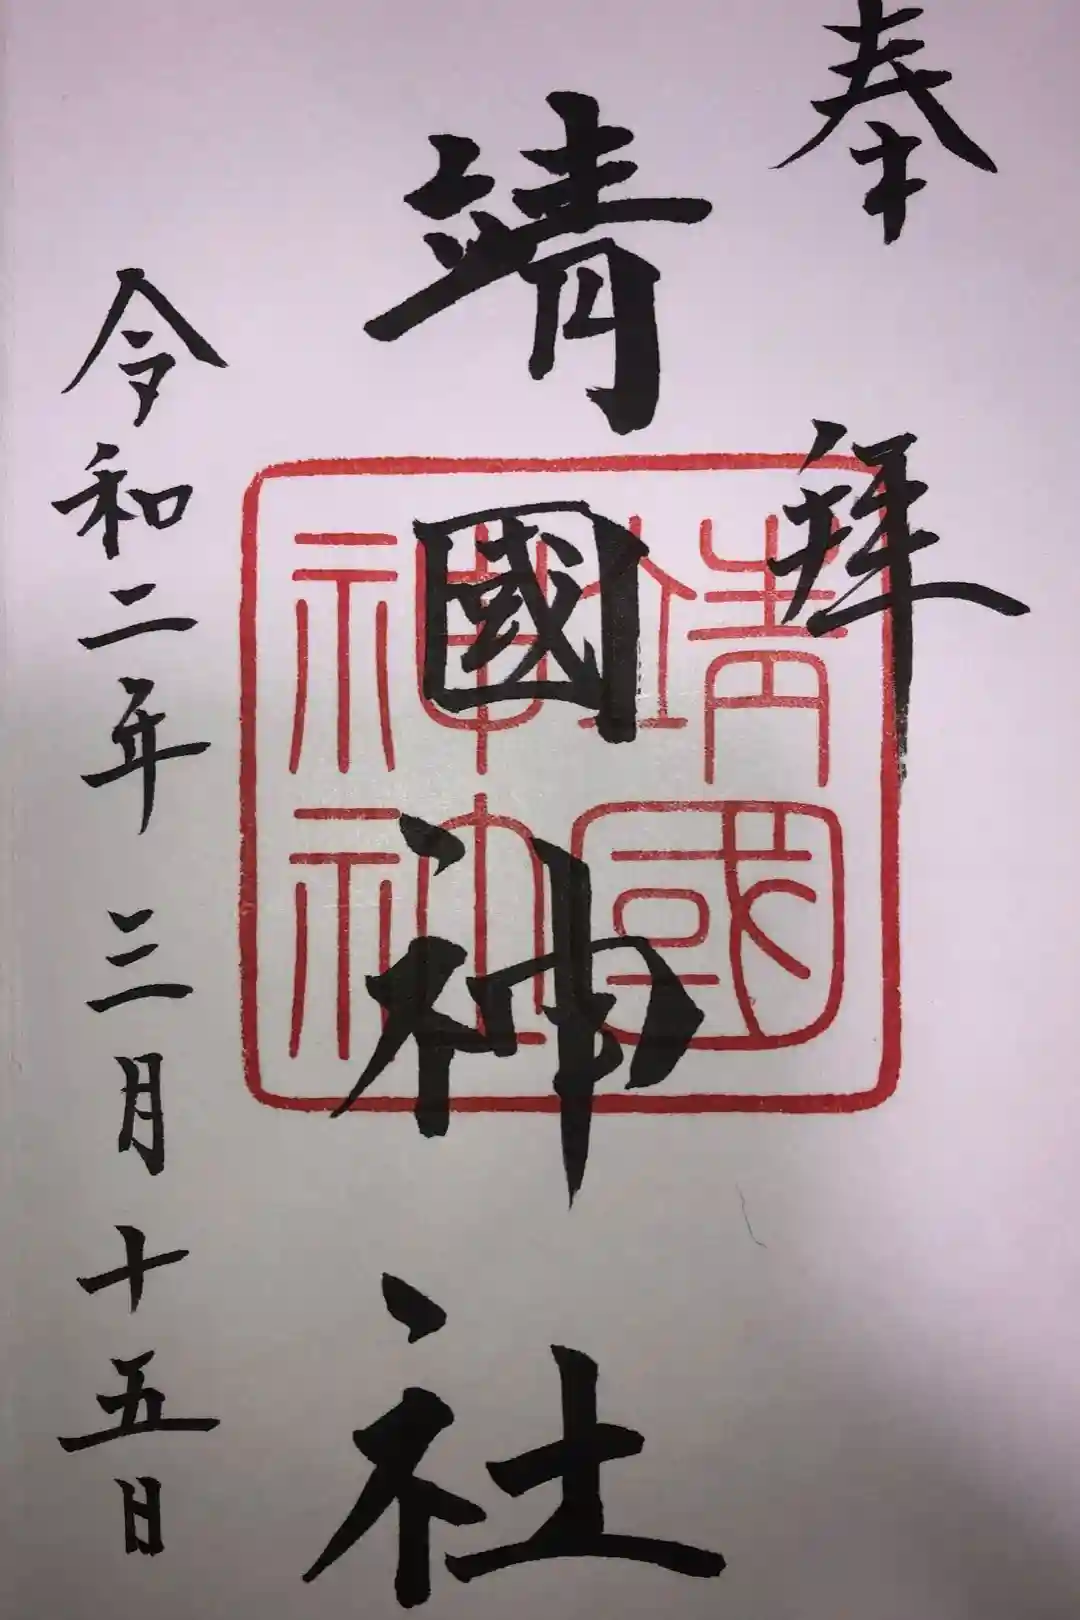 奉拜
靖國神社
靖國
神社
令和二年三月十五日